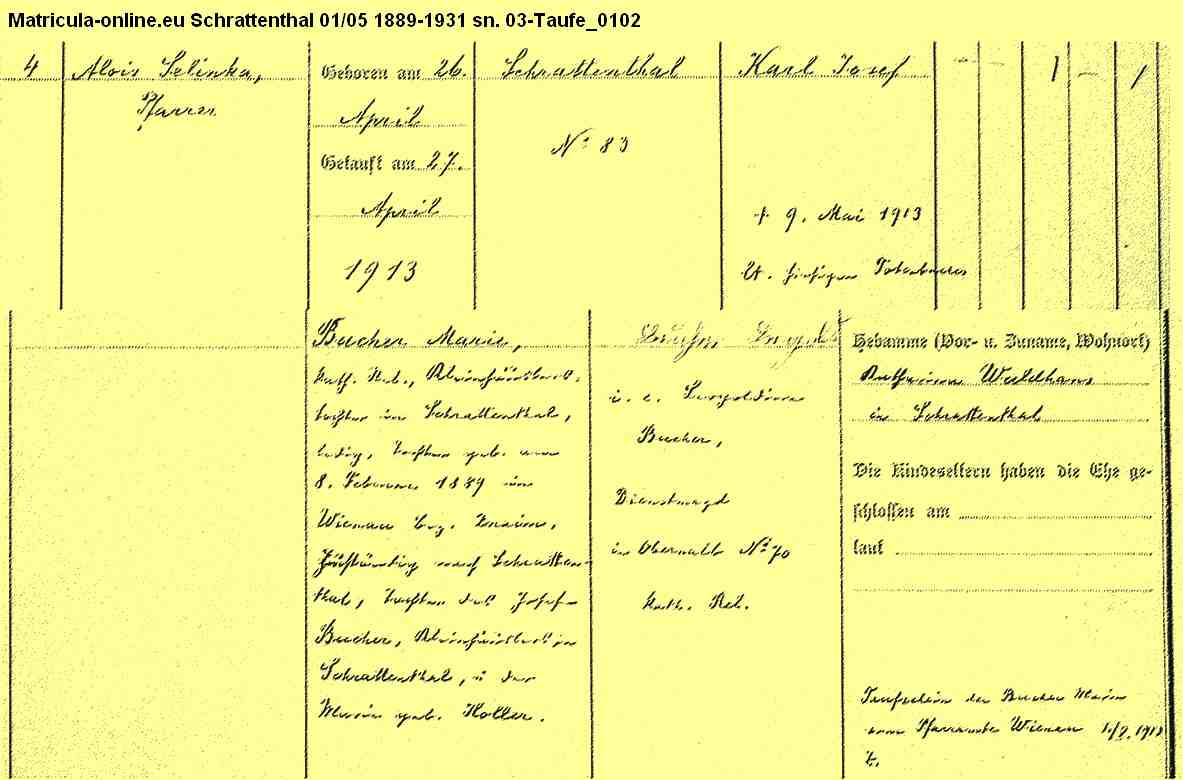 Matricula-online.eu Schrattenthal 01/05 1889-1931 sn. 03-Taufe_0102
4
Alois Selinka,
Pfarrer
Geboren am 26.
April
Getauft am 27.
April
1913
Schrattenthal
No 83
Karl Josef
† 9. Mai 1913
lt. hiesigen Totenbuches
1 1
Bucher Marie,
kath. Rel., Kleinhäuslers-
tochter in Schrattenthal,
ledig, geb. am
8. Februar 1889 in
Wienau Bez. Znaim,
zuständig nach Schratten-
thal, Tochter des Josef
Bucher, Kleinhäuslers in
Schrattenthal, u. der
Maria geb. Koller.
i. e. Leopoldine
Bucher,
Dienstmagd
in Obernalb No 70
kath. Rel.
Hebamme (Vor- u. Zuname, Wohnort)
Katharina Waldhans
in Schrattenthal
Die Kindeseltern haben die Ehe ge-
schlossen am
laut
Taufschein der Bucher Maria
vom Pfarramte Wienau